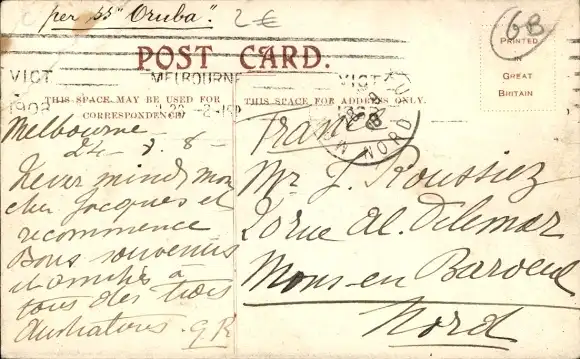 per SS "Oruba".
2€
6B
POST CARD.
PRINTED
IN
GREAT
BRITAIN
VICT
MELBOURNE
VICT
1908
THIS SPACE MAY BE USED FOR
CORRESPONDENCE
THIS SPACE FOR ADDRESS ONLY.
NORD
Melbourne
24
8
Never mind mon
cher Jacques et
recommence
Bons souvenirs
et amitiés à
tous des trois
G R
France
Mr J. Roussiez
rue
Mons-en Baroeul
Nord